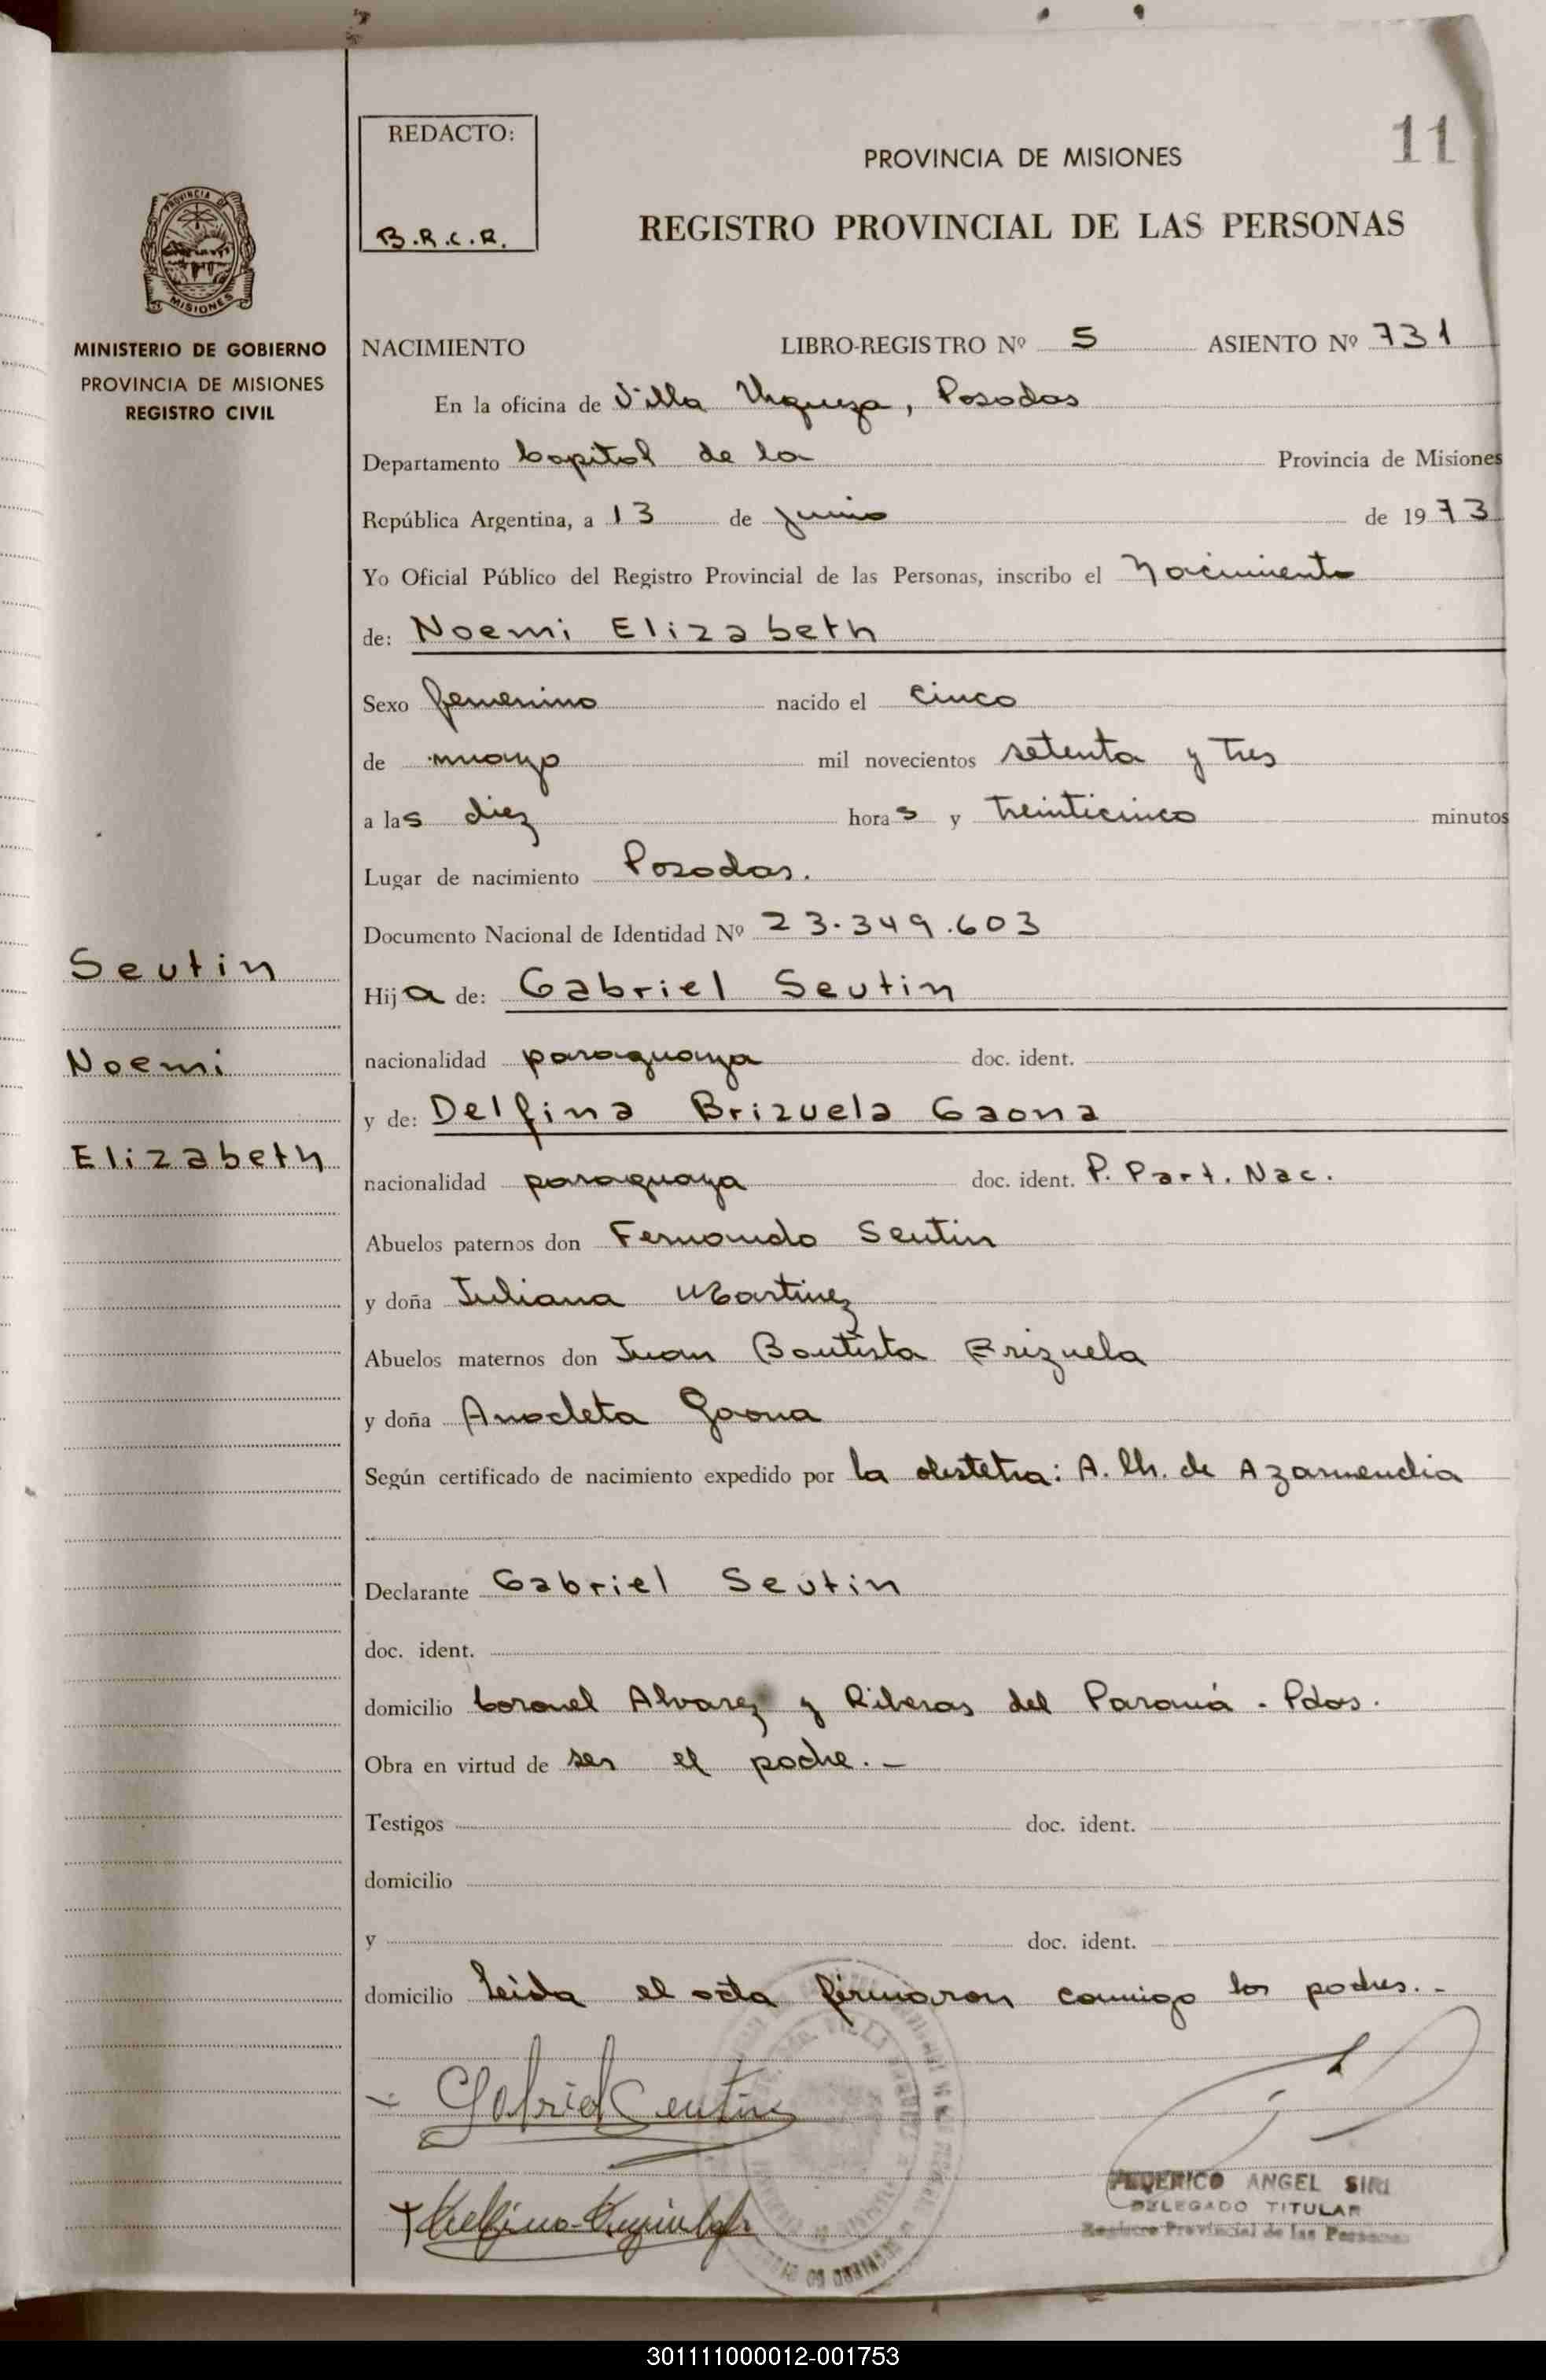 11
REDACTO:
B.R.C.R.
PROVINCIA DE MISIONES
REGISTRO PROVINCIAL DE LAS PERSONAS
PROVINCIA DE
MISIONES
MINISTERIO DE GOBIERNO
PROVINCIA DE MISIONES
REGISTRO CIVIL
Seutin
Noemi
Elizabeth
NACIMIENTO LIBRO-REGISTRO Nº 5 ASIENTO Nº 731
En la oficina de Villa Urquiza, Posadas
Departamento Capital de la Provincia de Misiones
República Argentina, a 13 de junio de 1973
Yo Oficial Público del Registro Provincial de las Personas, inscribo el Nacimiento
de: Noemi Elizabeth
Sexo femenino nacido el cinco
de mayo mil novecientos setenta y tres
a las diez horas y treinticinco minutos
Lugar de nacimiento Posadas.
Documento Nacional de Identidad Nº 23.349.603
Hija de: Gabriel Seutin
nacionalidad paraguaya doc. ident.
y de: Delfina Brizuela Gaona
nacionalidad paraguaya doc. ident. P. Part. Nac.
Abuelos paternos don Fernando Seutin
y doña Juliana Martinez
Abuelos maternos don Juan Bautista Brizuela
y doña Anacleta Gaona
Según certificado de nacimiento expedido por la obstetra: A. Ch. de Azarmendia
Declarante Gabriel Seutin
doc. ident.
domicilio Coronel Alvarez y Riberas del Paraná - Pdas.
Obra en virtud de ser el padre.-
Testigos doc. ident.
domicilio
y doc. ident.
domicilio Leida el acta firmaron conmigo los padres.-
Gabriel Seutin
FEDERICO ANGEL SIRI
DELEGADO TITULAR
Registro Provincial de las Personas
301111000012-001753